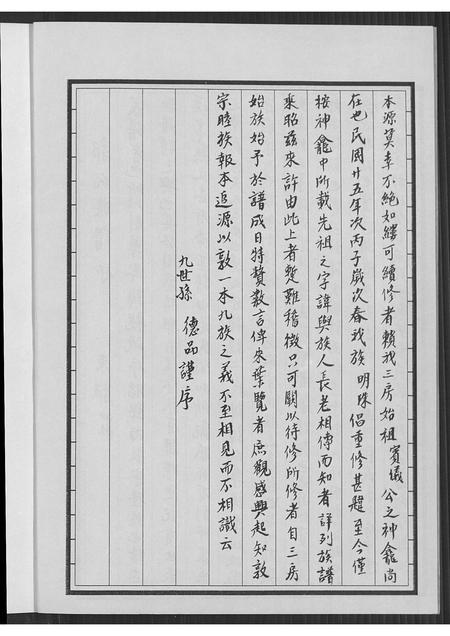 本源莫幸不絕如縷可續修者賴我三房始祖賓儀公之神龕尚
在也民國廿五年次丙子歲次春我族明珠倡重修甚韙至今僅
按神龕中所載先祖之字諱與族人長老相傳而知者詳列族譜
來昭茲來許由此上者暫難稽徵只可闕以待修所修者自三房
始族始予於譜成日特贅數言俾來葉覽者庶觀感興起知敦
宗睦族報本追源以敦一本九族之義不至相見而不相識云
九世孫 德品謹序